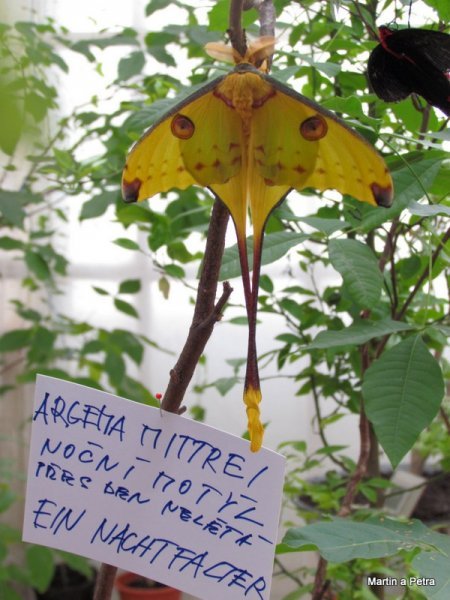 ARGEMA MITTREI
NOČNÍ MOTÝL
PŘES DEN NELÉTÁ
EIN NACHTFALTER
Martin a Petra